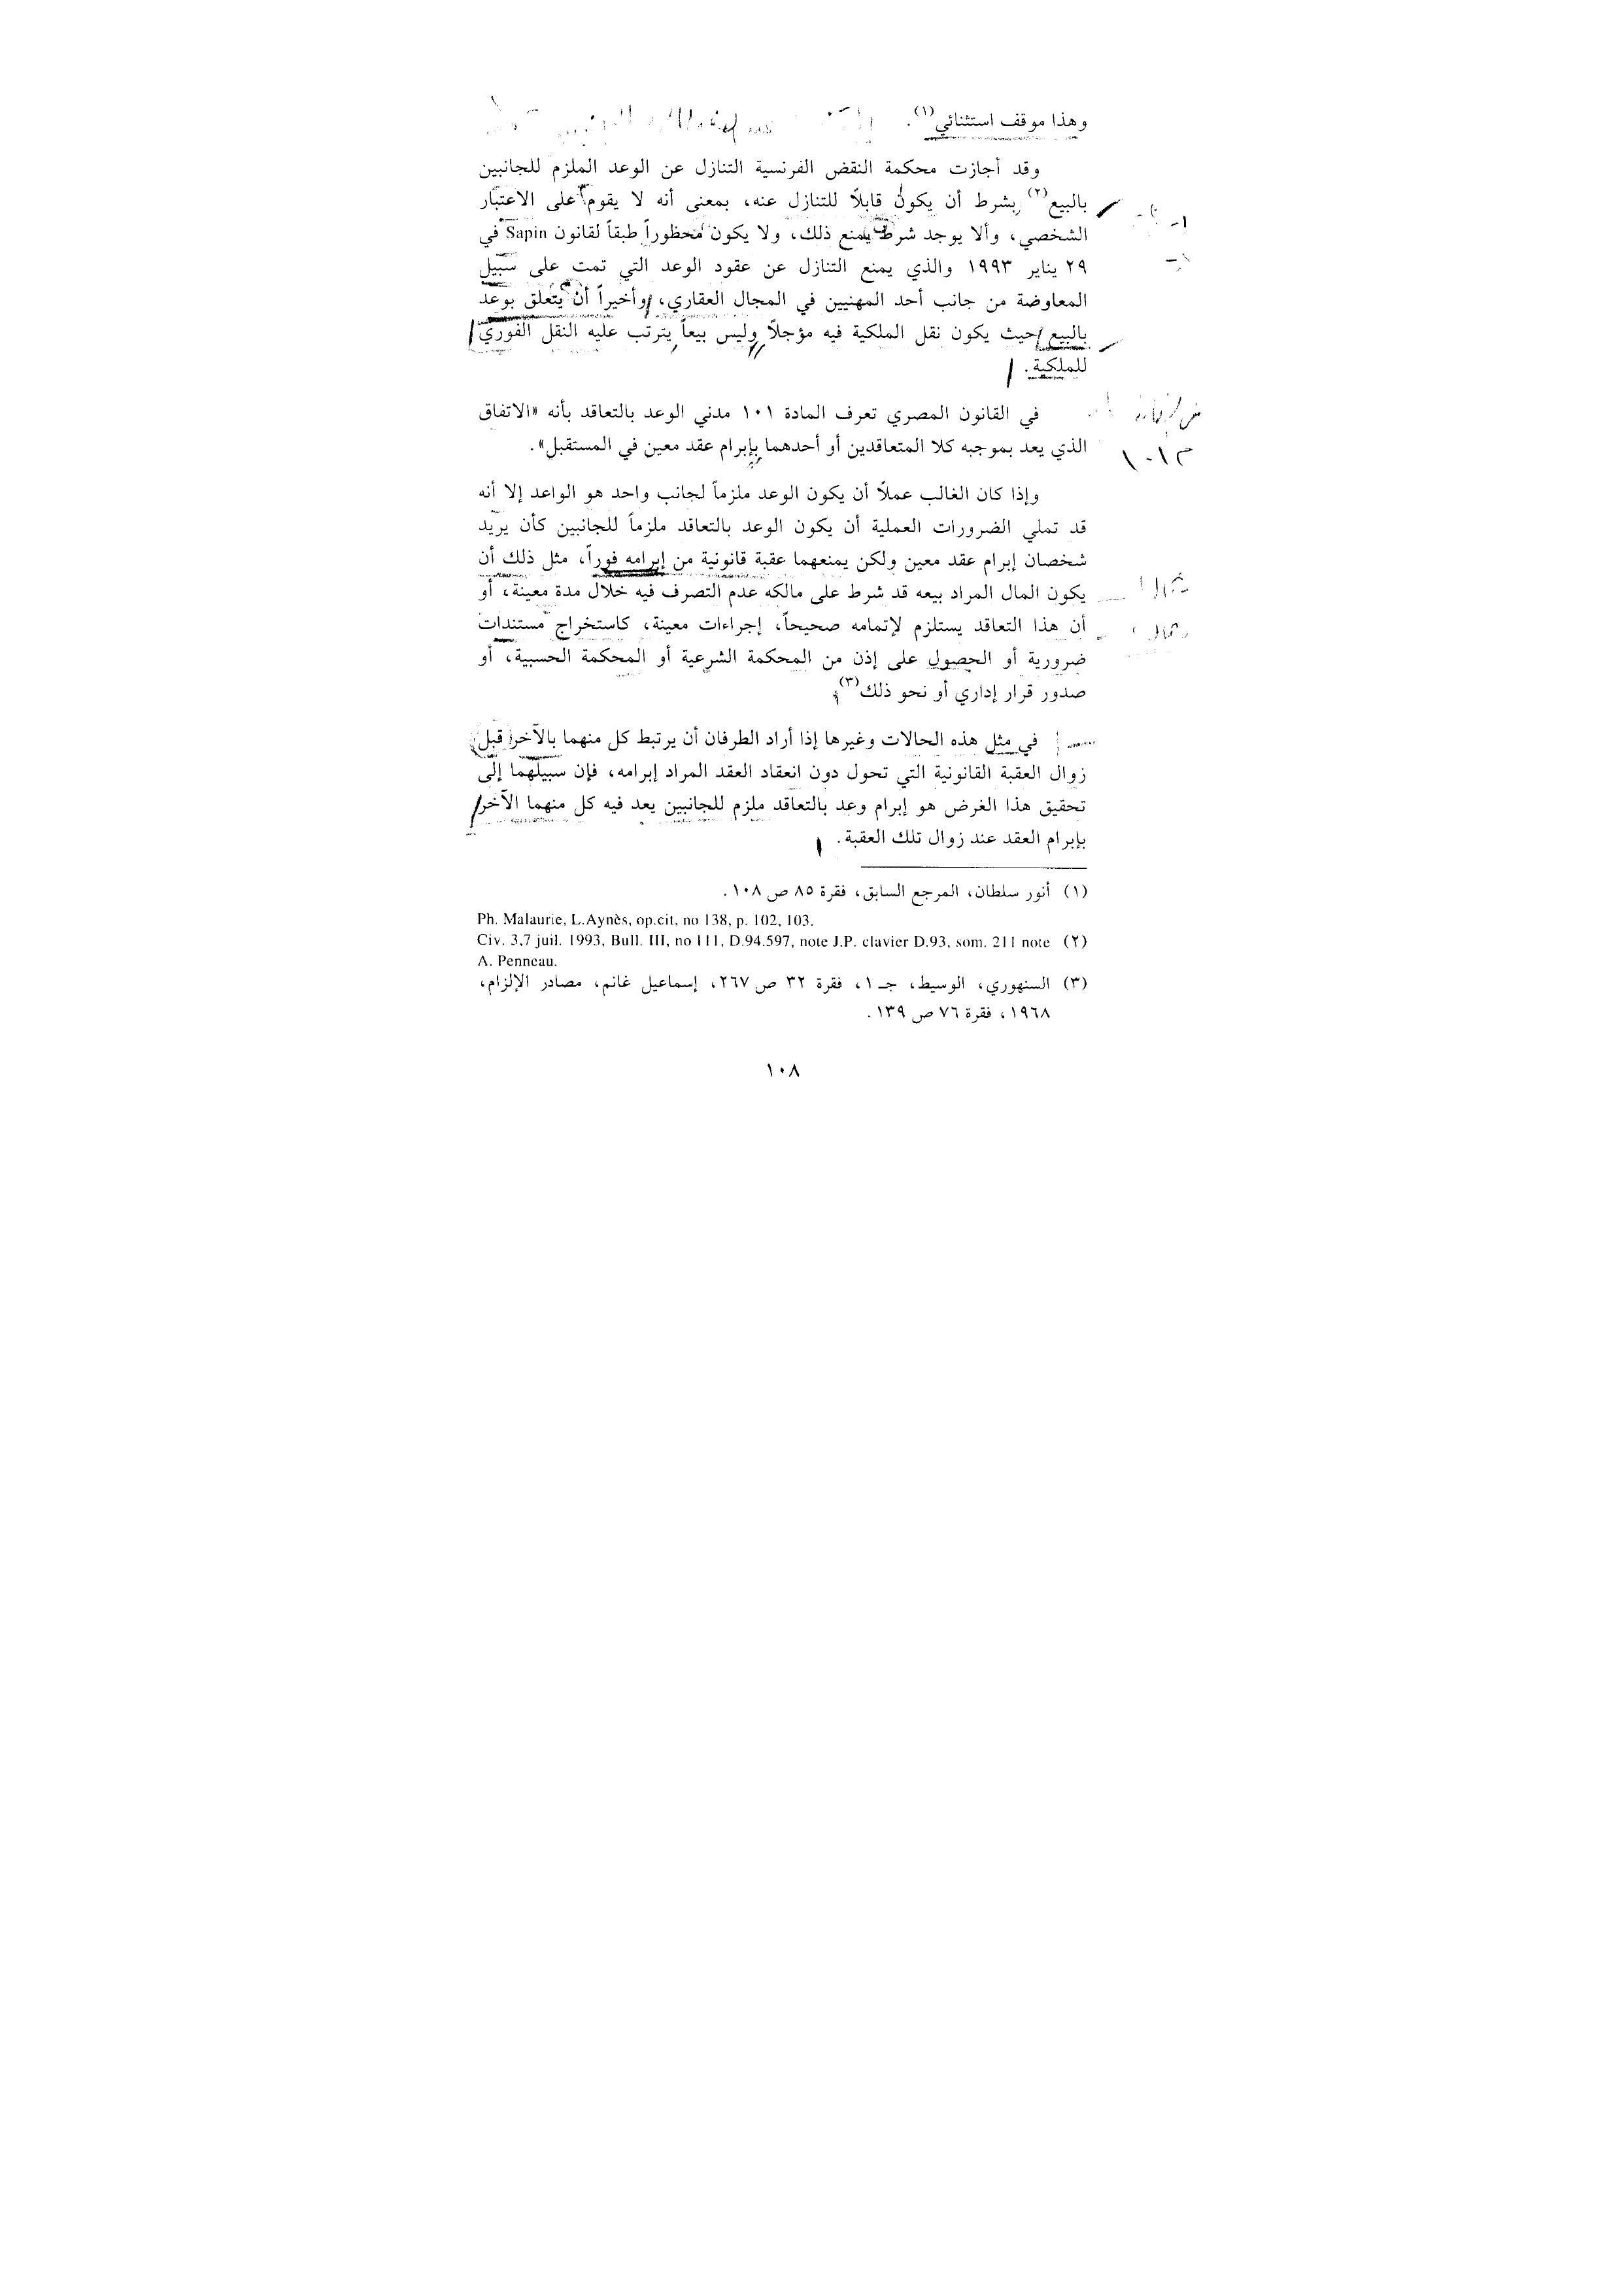 وهذا موقف استثنائي(١).
وقد أجازت محكمة النقض الفرنسية التنازل عن الوعد الملزم للجانبين
بالبيع(٢) بشرط أن يكون قابلاً للتنازل عنه، بمعنى أنه لا يقوم على الاعتبار
الشخصي، وألا يوجد شرط يمنع ذلك، ولا يكون محظوراً طبقاً لقانون Sapin في
٢٩ يناير ١٩٩٣ والذي يمنع التنازل عن عقود الوعد التي تمت على سبيل
المعاوضة من جانب أحد المهنيين في المجال العقاري، وأخيراً أن يتعلق بوعد
بالبيع حيث يكون نقل الملكية فيه مؤجلاً وليس بيعاً يترتب عليه النقل الفوري
للملكية.
في القانون المصري تعرف المادة ١٠١ مدني الوعد بالتعاقد بأنه «الاتفاق
الذي يعد بموجبه كلا المتعاقدين أو أحدهما بإبرام عقد معين في المستقبل».
م ١٠١
وإذا كان الغالب عملاً أن يكون الوعد ملزماً لجانب واحد هو الواعد إلا أنه
قد تملي الضرورات العملية أن يكون الوعد بالتعاقد ملزماً للجانبين كأن يريد
شخصان إبرام عقد معين ولكن يمنعهما عقبة قانونية من إبرامه فوراً، مثل ذلك أن
يكون المال المراد بيعه قد شرط على مالكه عدم التصرف فيه خلال مدة معينة، أو
أن هذا التعاقد يستلزم لإتمامه صحيحاً، إجراءات معينة، كاستخراج مستندات
ضرورية أو الحصول على إذن من المحكمة الشرعية أو المحكمة الحسبية، أو
صدور قرار إداري أو نحو ذلك(٣).
في مثل هذه الحالات وغيرها إذا أراد الطرفان أن يرتبط كل منهما بالآخر قبل
زوال العقبة القانونية التي تحول دون انعقاد العقد المراد إبرامه، فإن سبيلهما إلى
تحقيق هذا الغرض هو إبرام وعد بالتعاقد ملزم للجانبين يعد فيه كل منهما الآخر
بإبرام العقد عند زوال تلك العقبة.
(١) أنور سلطان، المرجع السابق، فقرة ٨٥ ص ١٠٨.
Ph. Malaurie, L.Aynès, op.cit, no 138, p. 102, 103.
(٢) Civ. 3,7 juil. 1993, Bull. III, no 111, D.94.597, note J.P. clavier D.93, som. 211 note
A. Penneau.
(٣) السنهوري، الوسيط، جـ ١، فقرة ٣٢ ص ٢٦٧، إسماعيل غانم، مصادر الإلزام،
١٩٦٨، فقرة ٧٦ ص ١٣٩.
١٠٨